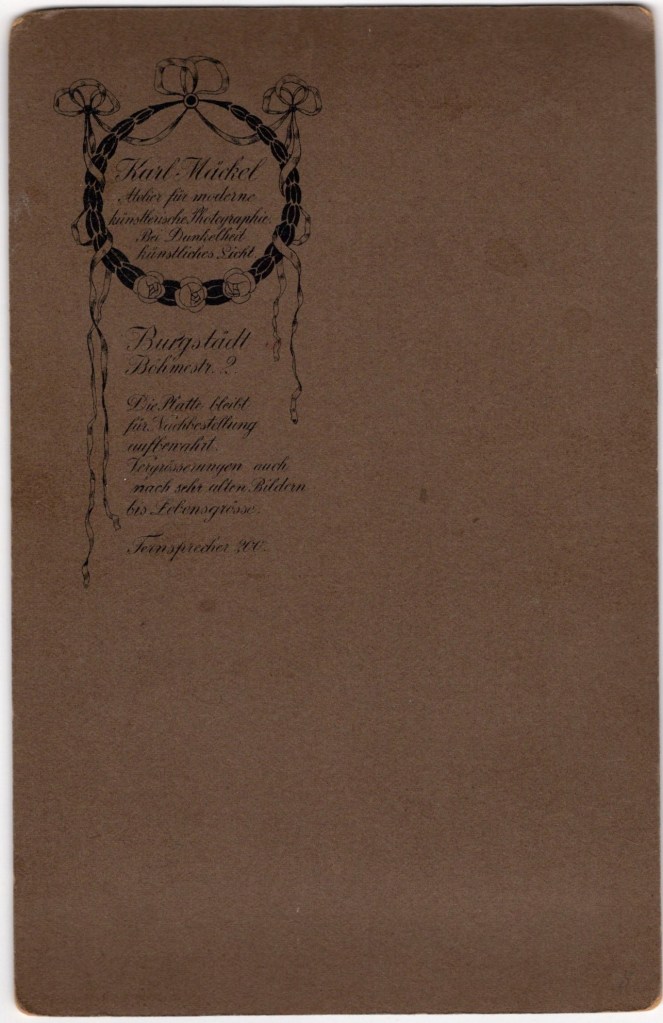 Karl Mäckel
Atelier für moderne
künstlerische Photographie.
Bei Dunkelheit
künstliches Licht.
Burgstädt
Böhmestr. 2
Die Platte bleibt
für Nachbestellung
aufbewahrt.
Vergrösserungen auch
nach sehr alten Bildern
bis Lebensgrösse.
Fernsprecher 200.